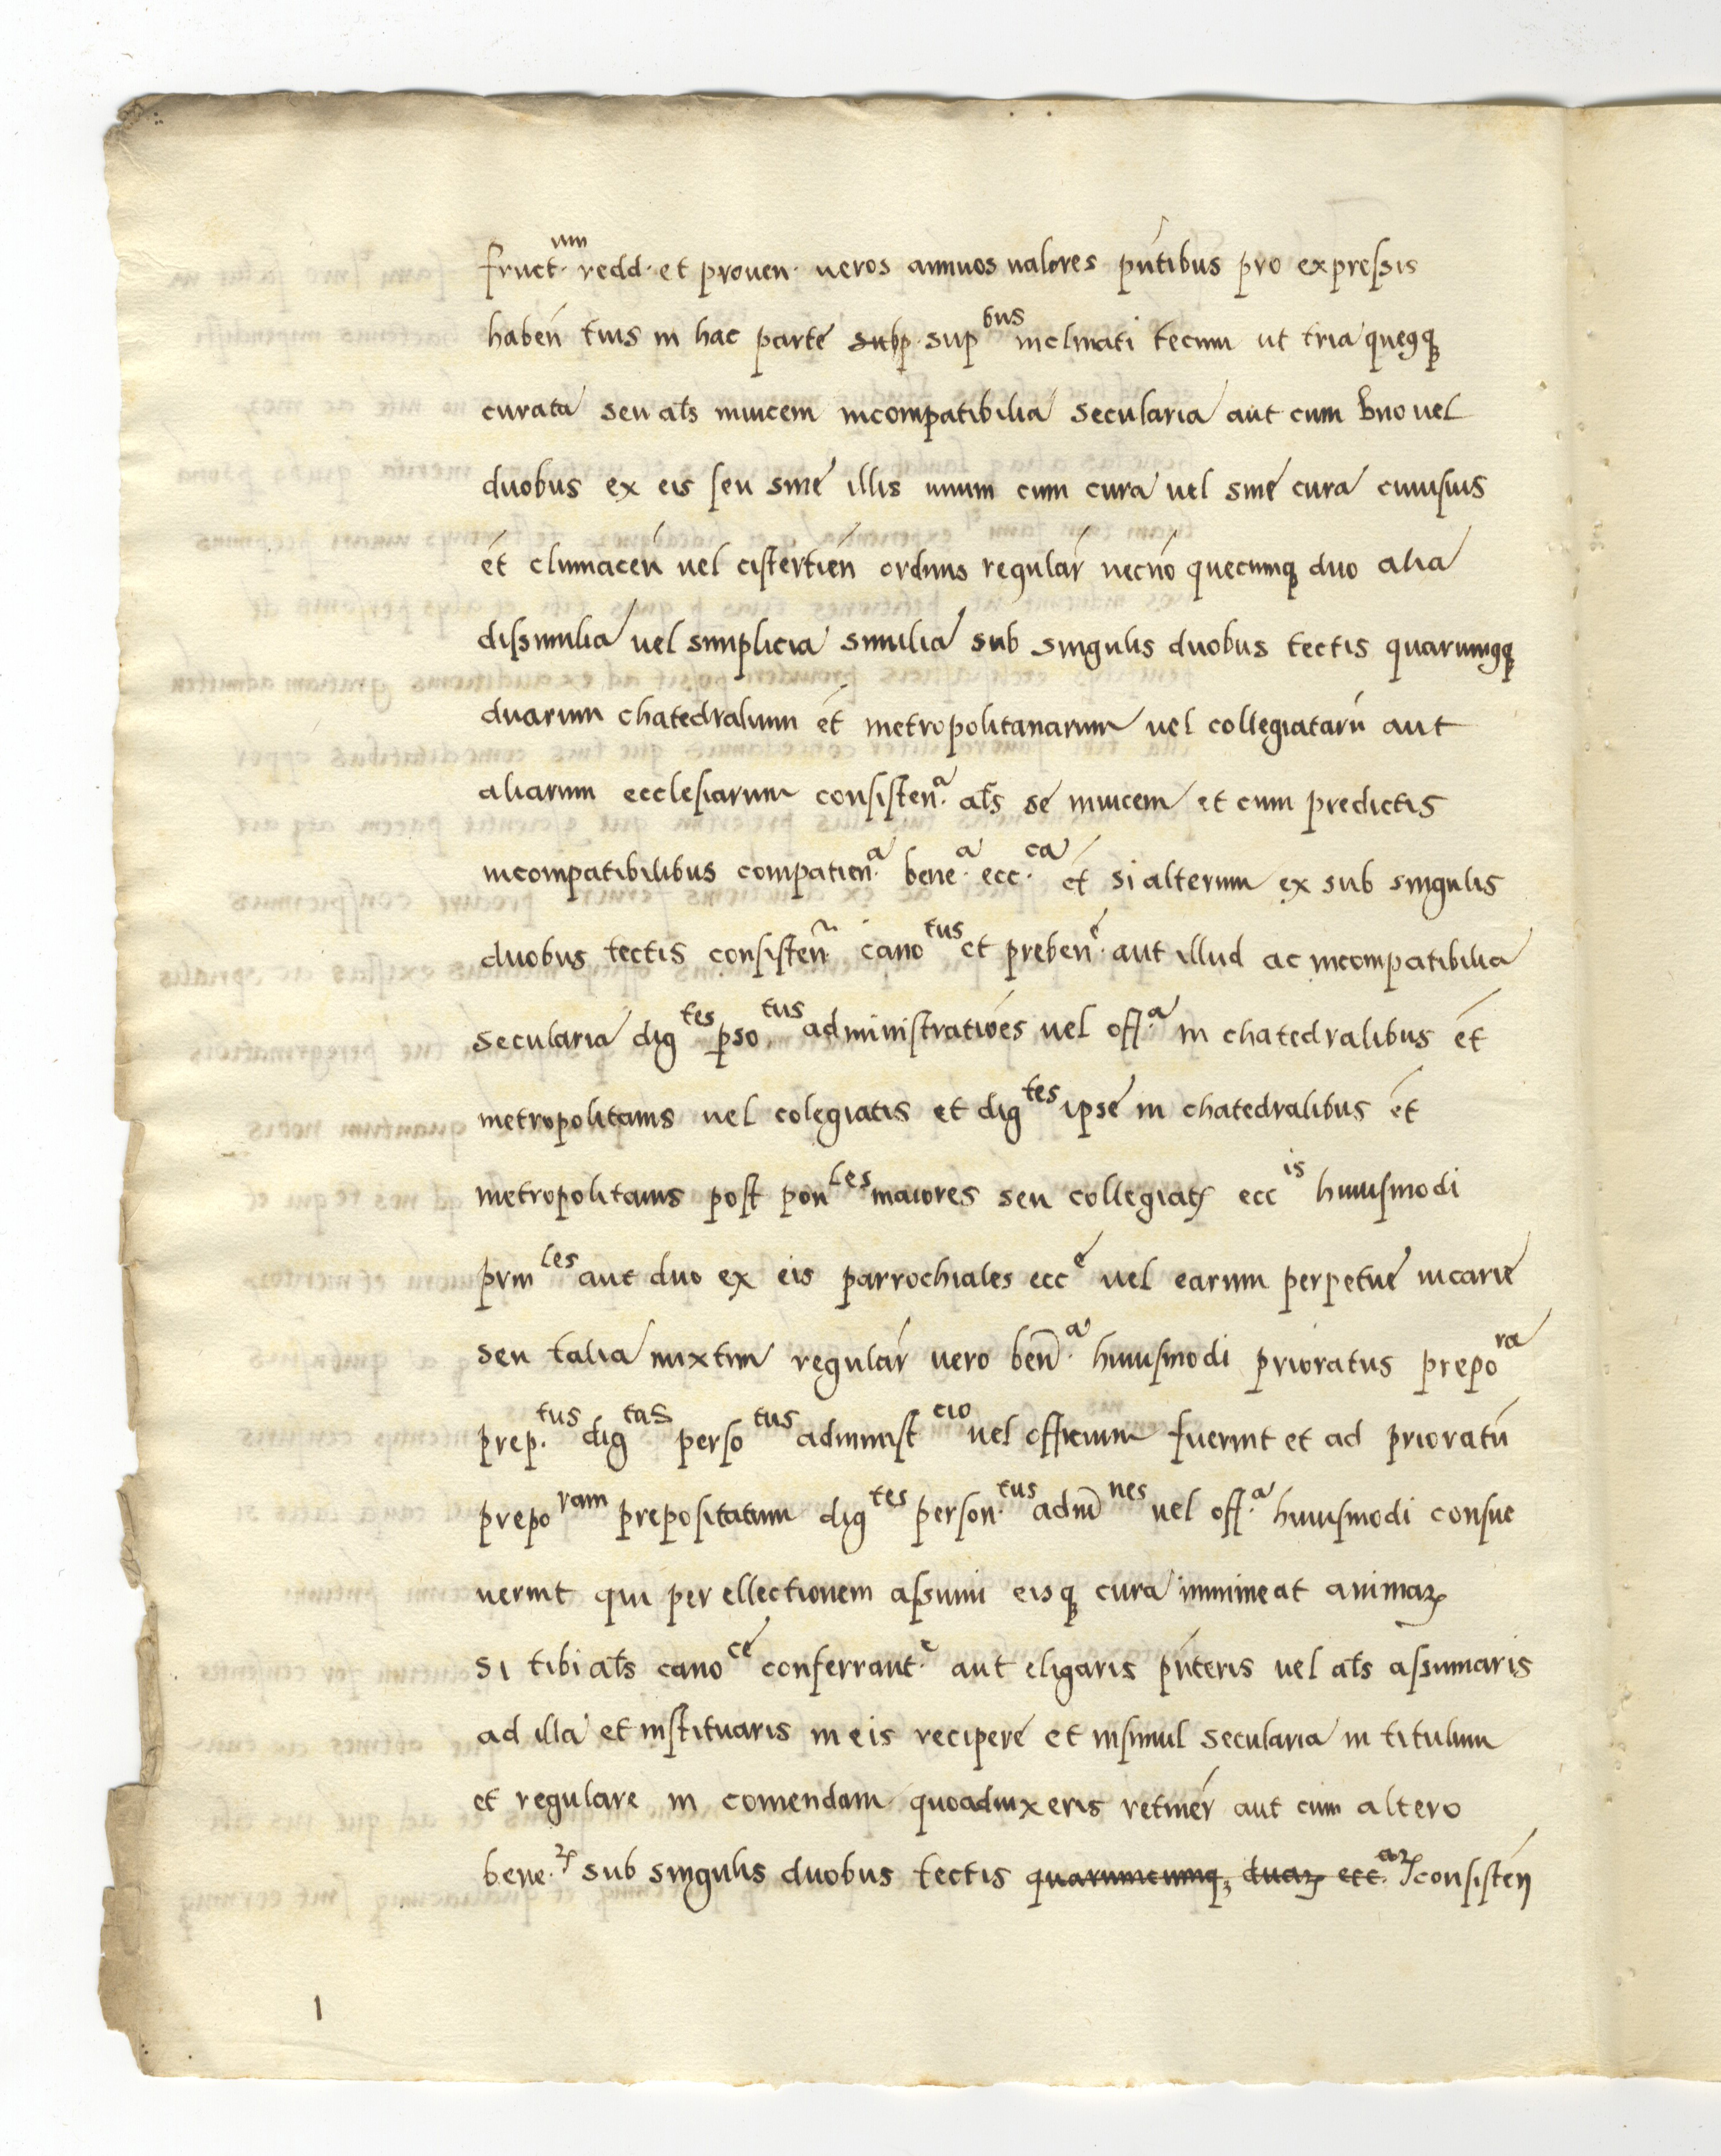 fruct.um redd. et prouen. ueros annuos ualores pñtibus pro expressis
habeñ tuis in hac parte subp. supbus inclinati tecum ut tria queqq
curata seu als inuicem incompatibilia secularia aut cum uno uel
duobus ex eis seu sine illis unum cum cura uel sine cura cuiusuis
ét cluniaceñ uel cistertieñ ordinis regulař necnō quecumq duo alia
dissimilia uel simplicia similia sub singulis duobus tectis quarumqq
duarum chatedralium ét metropolitanarum uel collegiatarū aut
aliarum ecclesiarum consisten.a als se inuicem et cum predictis
incompatibilibus compatien.a bene.a ecc.ca ét si alterum ex sub singulis
duobus tectis consisteñ. canotus et preben.e aut illud ac incompatibilia
secularia digtes psotus administratiões uel off.a in chatedralibus ét
metropolitanis uel colegiatis et digtes ipse in chatedralibus ét
metropolitanis post ponles maiores seu collegiatꝭ eccis huiusmodi
prinles aut duo ex eis parrochiales ecce uel earum perpetue uicarie
seu talia mixtim regulař uero beñ.a huiusmodi prioratus prepora
prep.tus digtas persotus administcio uel officium fuerint et ad prioratū
preporam prepositatum digtes person.tus adm̄nes uel off.a huiusmodi consue
uerint qui per ellectionem assumi eisq cura immineat animaꝝ
si tibi als canoce conferrant.e aut eligaris pñteris uel als assumaris
ad illa et instituaris in eis recipere et insimul secularia in titulum
et regulare in comendam quoaduixeris retineř aut cum altero
bene.ꝝ sub singulis duobus tectis quarumcumq, duaꝝ ecc.aꝝ consisteñ
1